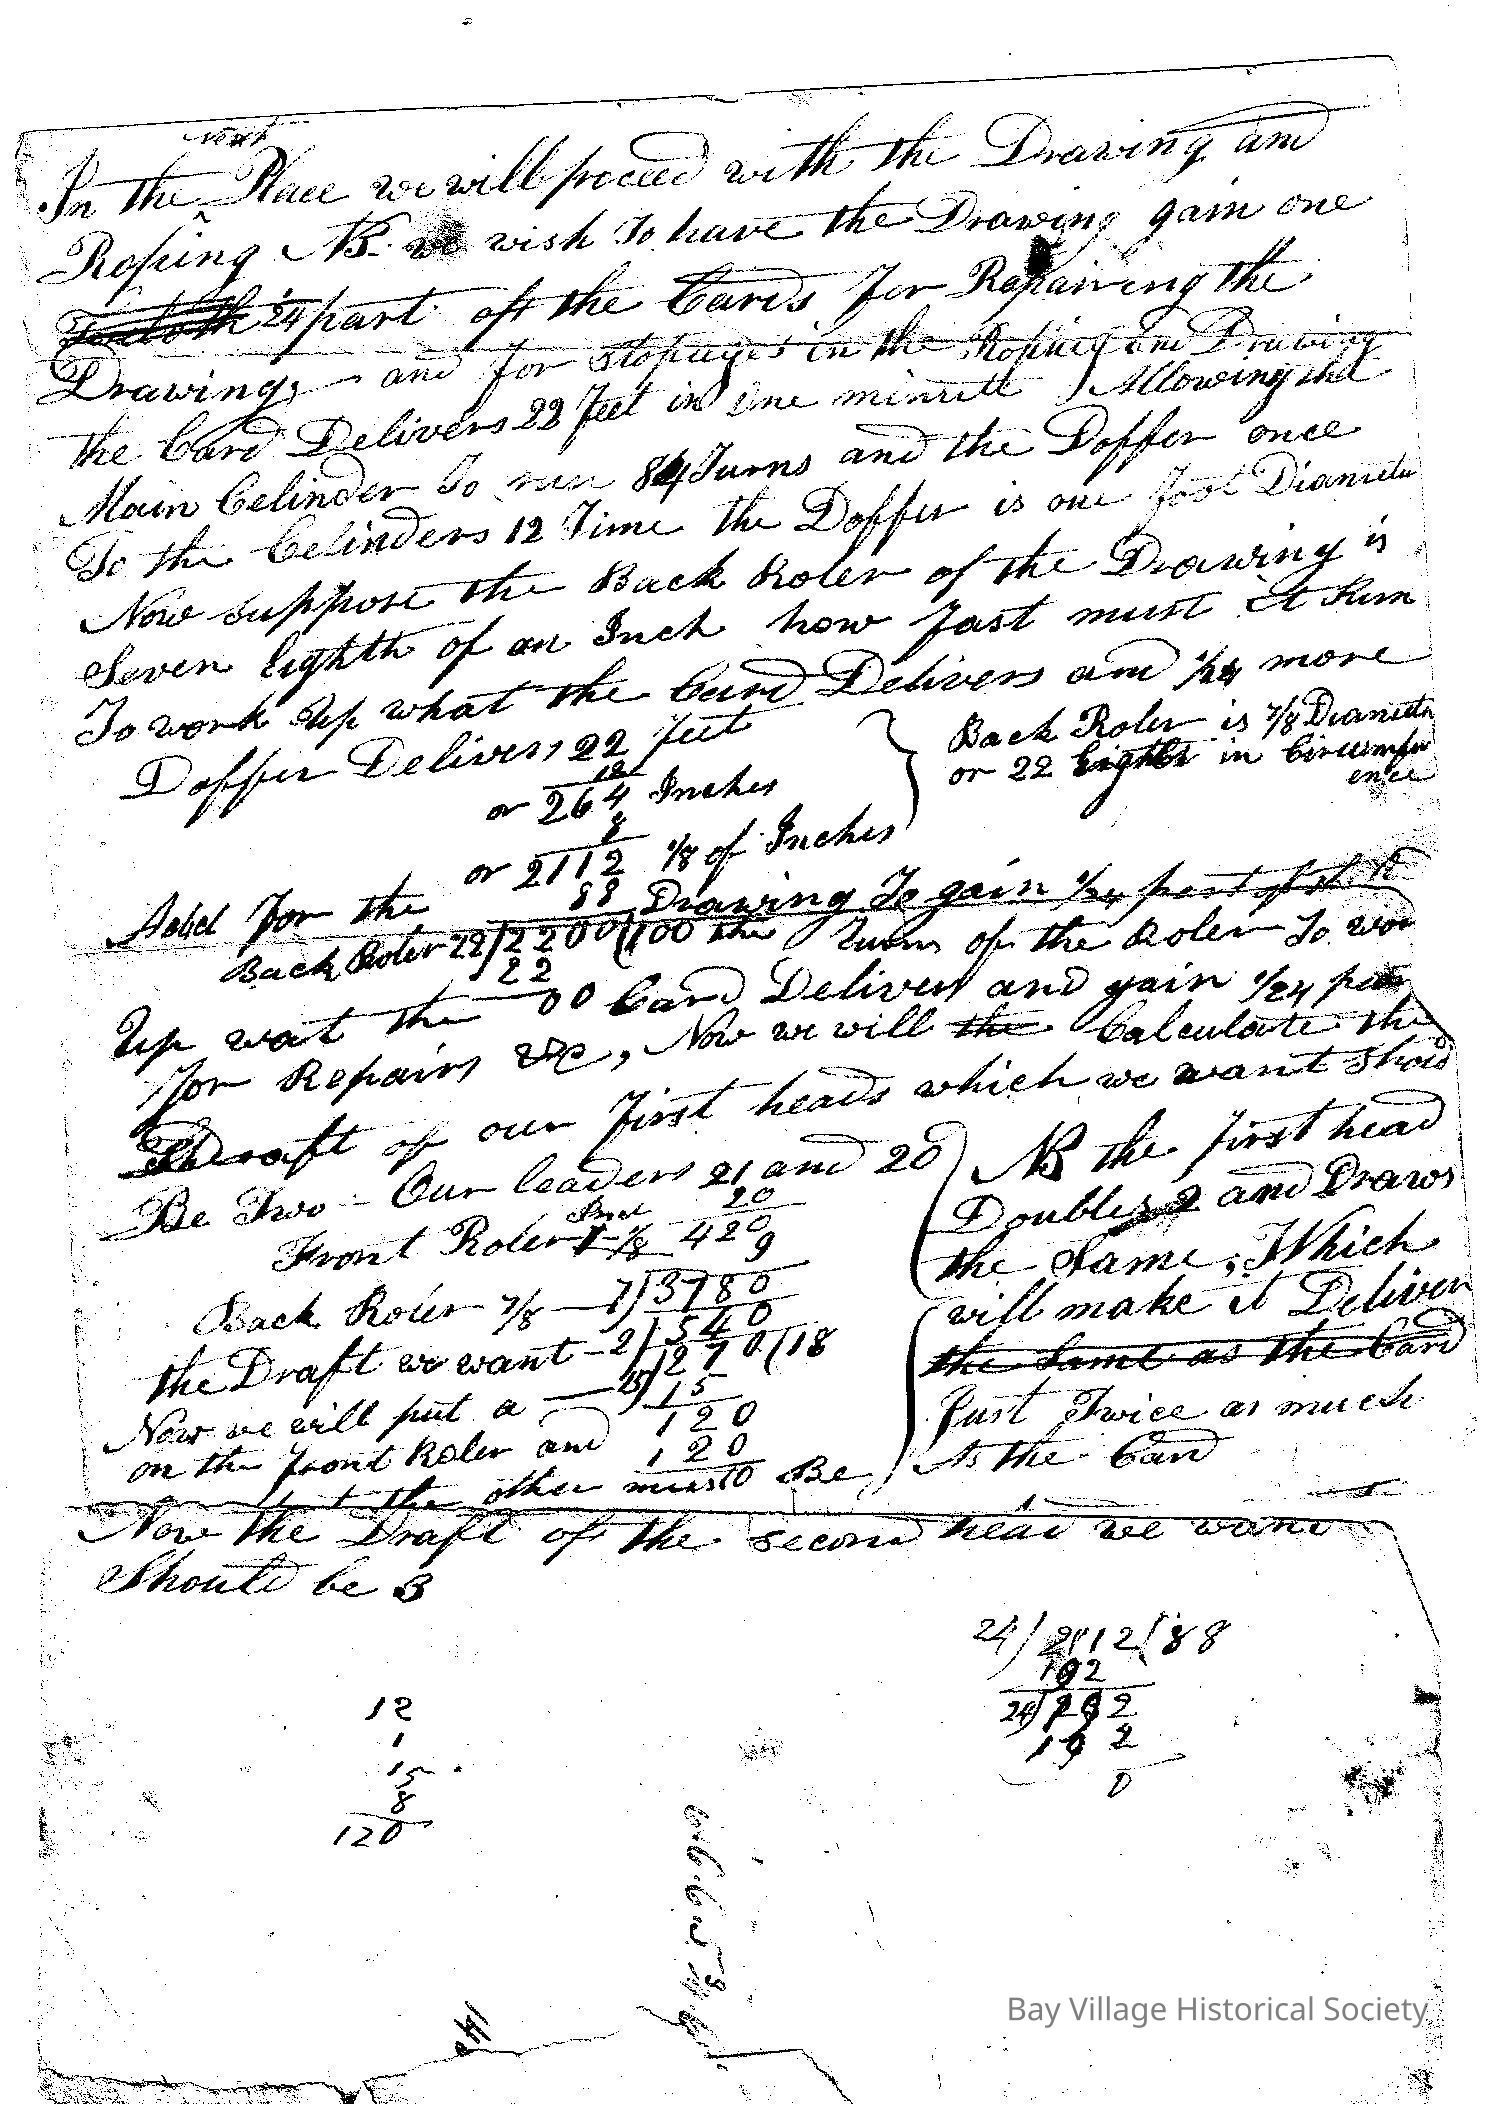 next
In the Place we will proceed with the Drawing and
Roping NB. we wish To have the Drawing gain one
24 part of the Cards for Repairing the
Drawings and for Stopuges in the Roping and Drawing
the Card Delivers 22 feet in one minuett Allowing the
Main Celinder To run 84 Turns and the Doffer once
To the Celinders 12 Time the Doffer is one foot Diameter
Now suppose the Back Roler of the Drawing is
Seven Eighth of an Inch how fast must it Run
To work Up what the Card Delivers and 1/24 more
Doffer Delivers 22 feet
12
or 264 Inches
8
or 2112 1/8 of Inches
Back Roler is 7/8 Diametter
or 22 Eights in Circumfer
ence
Add for the 88 Drawing To gain 1/24 part of
Back Roler 22)2200(100 the Turns of the Roler To wor
22
Up wat the 00 Card Delivers and gain 1/24 part
for Repairs &c, Now we will the Calculate the
Draft of our first heads which we want Shold
Be Two - Our leaders 21 and 20
20
Front Roler 1-1/8 420
9
Back Roler 7/8 - 7)3780
540
the Draft we want - 2)270(18
Now we will put a 15)15
120
on the front Roler and 120
the other must 0 Be
NB the first head
Doubles 2 and Draws
the Same, Which
will make it Deliver
the Same as the Card
Just Twice as much
As the Card
Now the Draft of the second head we want
Should be 3
24)2112(88
192
24)192
192
0
12
1
15
8
120
14
Bay Village Historical Society